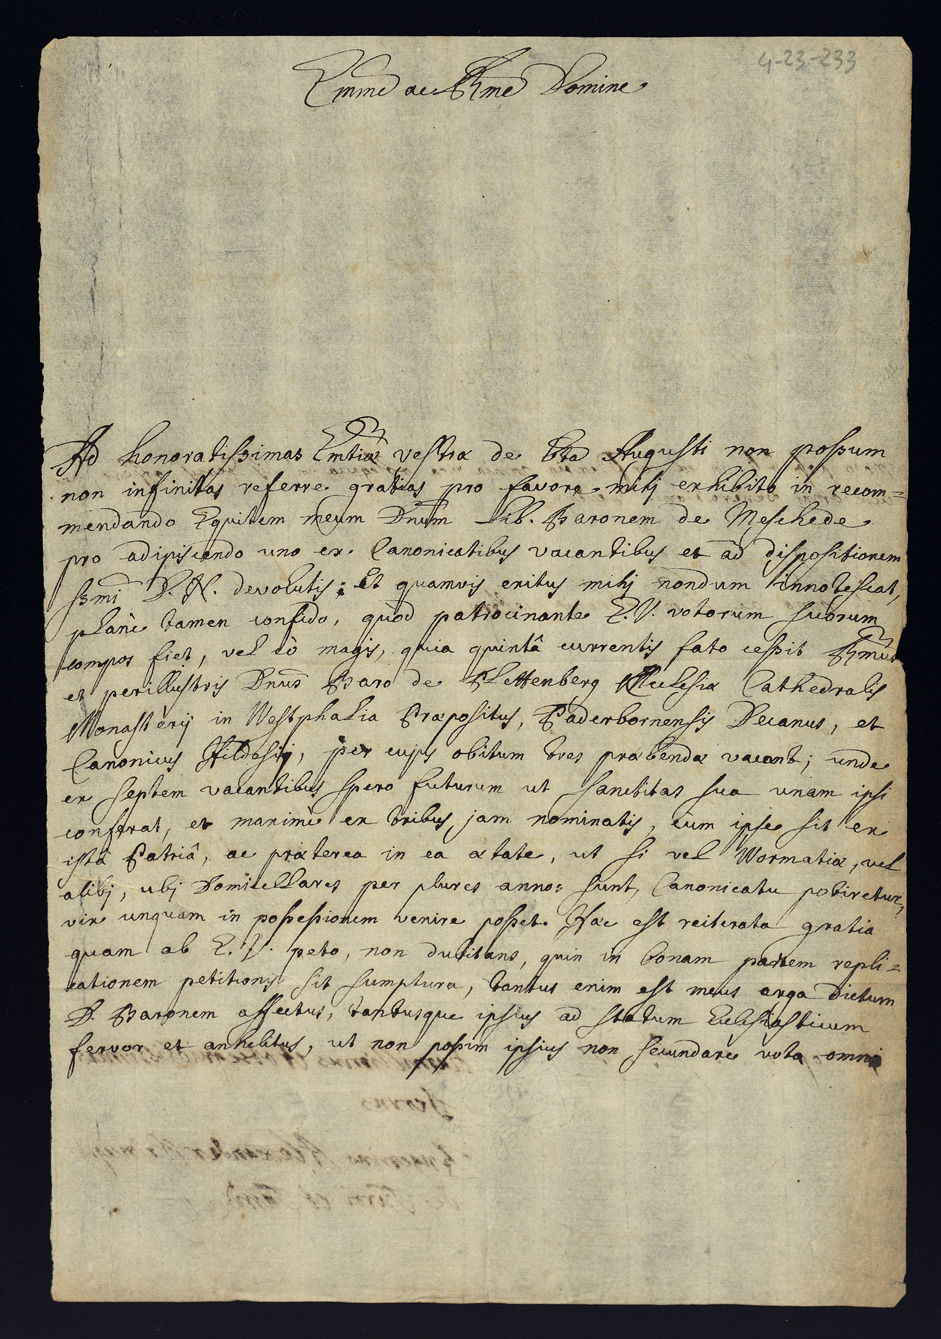 4-23-233
Emme ac Rme Domine
Ad honoratissimas Emtiæ vestræ de 6ta Augusti non possum
non infinitas referre gratias pro favore mihj exhibito in recom=
mendando Equitem meum Dnum Lib. Baronem de Meschede
pro adipiscendo uno ex Canonicatibus vacantibus et ad dispositionem
Ssmi D. N. devolutis; Et quamvis exitus mihj nondum innotescat,
planè tamen confido, quod patrocinante E. V. votorum suorum
compos fiet, vel eò magis, quia quintâ currentis fato cessit Rmus
et perillustris Dnus Baro de Plettenberg Ecclesiæ Cathedralis
Monasterij in Westphalia Præpositus, Paderbornensis Decanus, et
Canonicus Hildesij, per cujus obitum tres præbendæ vacant; unde
ex septem vacantibus spero futurum ut Sanctitas sua unam ipsi
conferat, et maximè ex tribus jam nominatis, cùm ipse sit ex
istâ Patriâ, ac præterea in ea ætate, ut si vel Wormatiæ, vel
alibj, ubj Domicellares per plures annos sunt, Canonicatu potiretur,
vix unquam in possessionem venire posset. Hæc est reiterata gratia
quam ab E. V. peto, non dubitans, quin in bonam partem repli=
cationem petitionis sit sumptura, tantus enim est meus erga Dictum
D. Baronem affectus, tantusque ipsius ad statum Ecclesiasticum
fervor et anhelitus, ut non possim ipsius non secundare vota omni